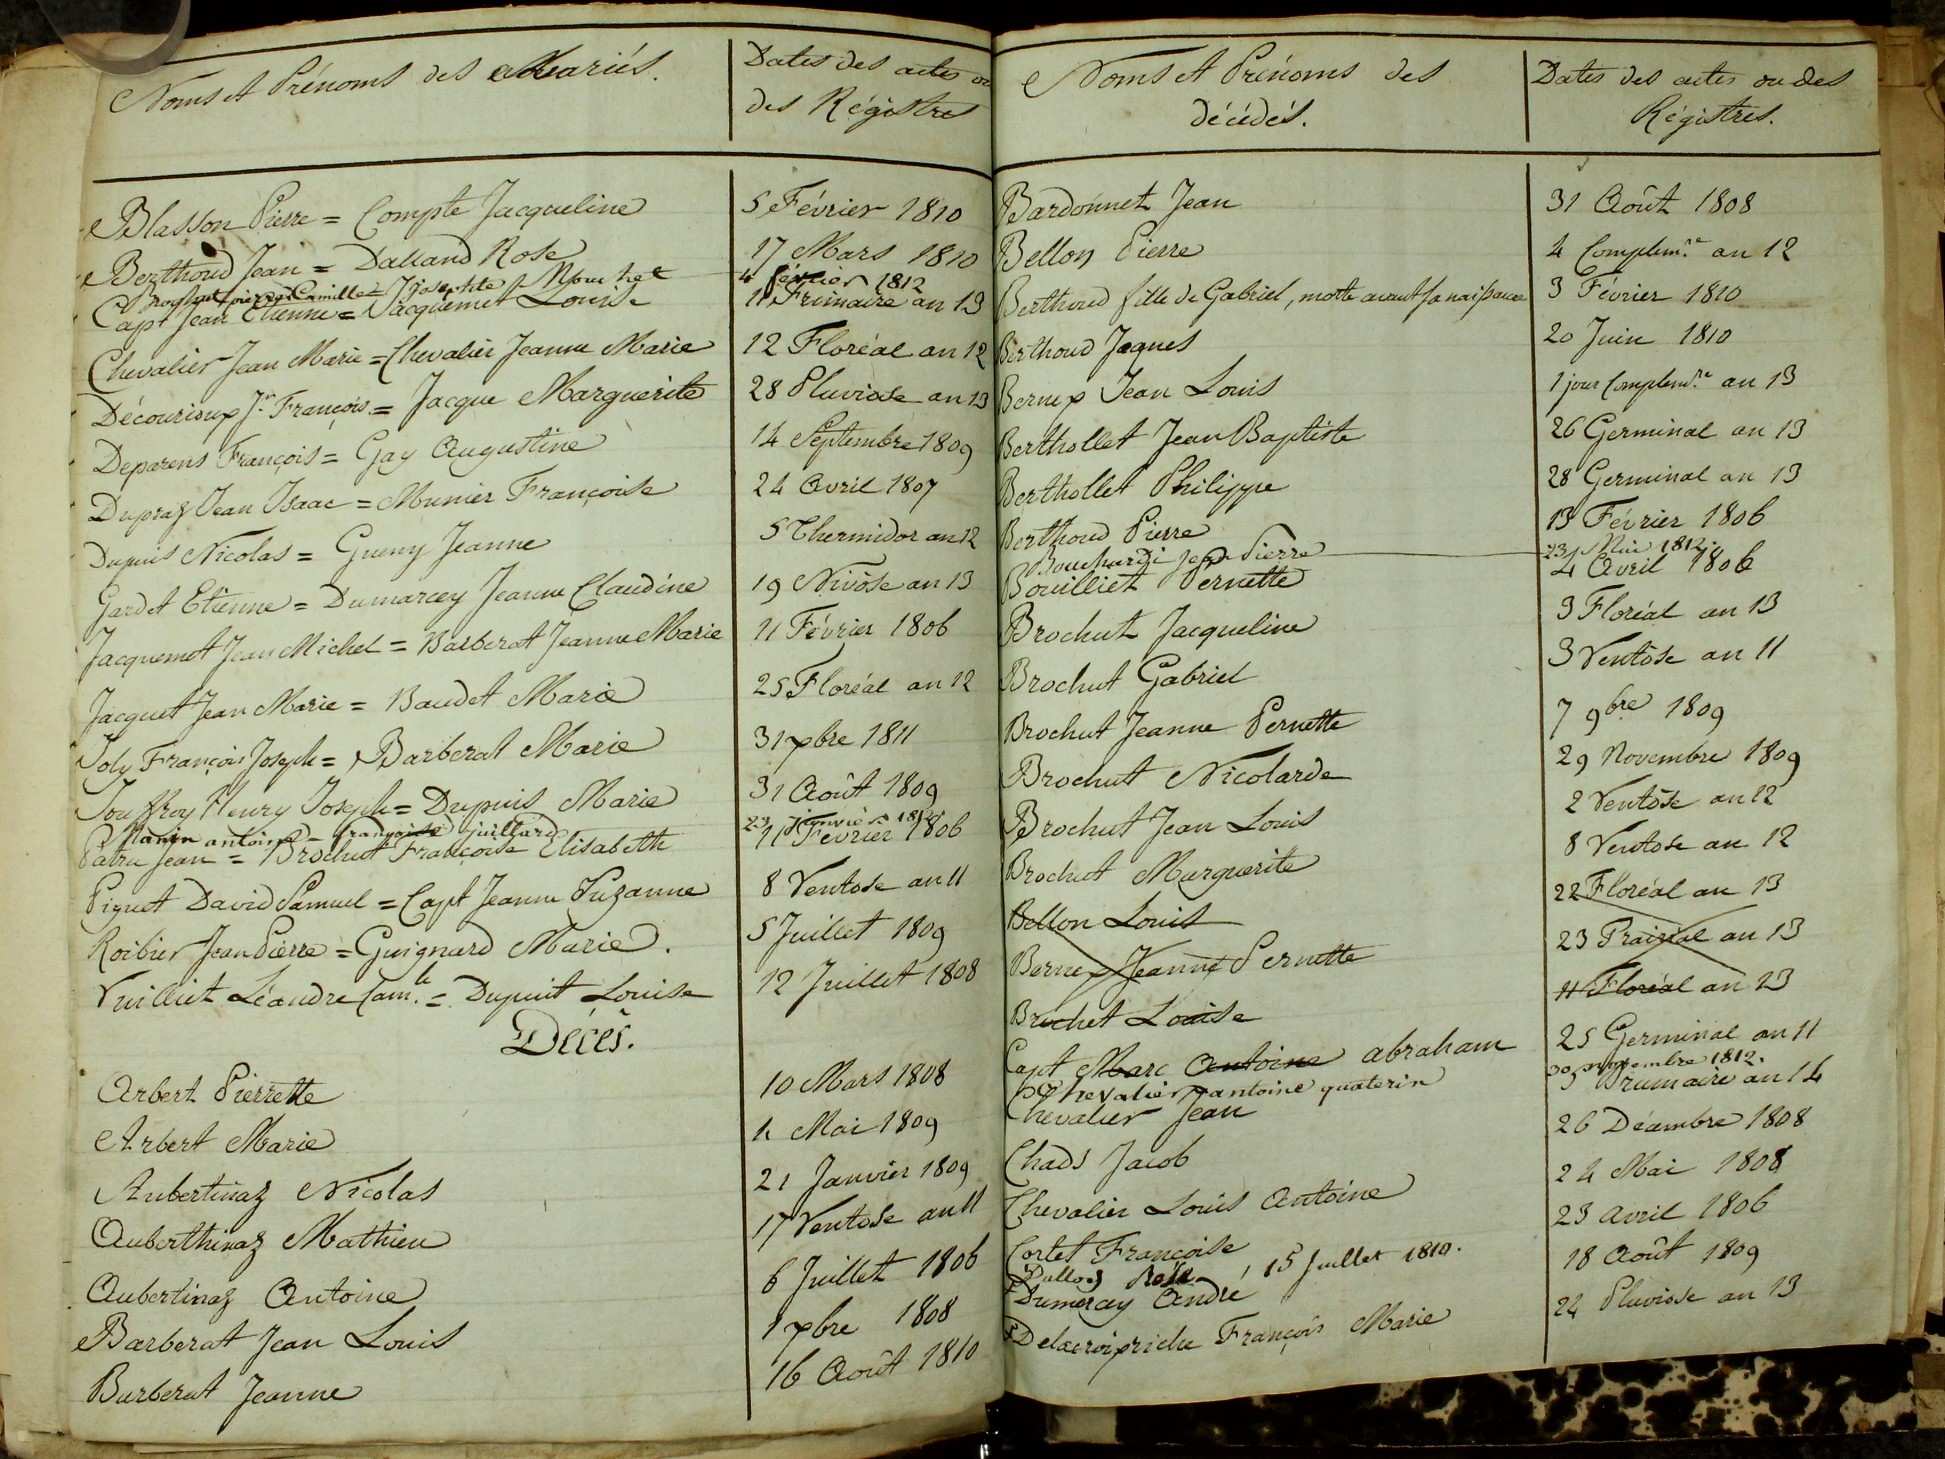 Noms et Prénoms des Mariés.
Dates des actes ou
des Régistres
Blasson Pierre = Compte Jacqueline 5 Février 1810
Berthoud Jean = Dalland Rose 17 Mars 1810
pierre Camille = Josephte 4 février 1812
Capt Jean Etienne = Jacquemet Louise 11 Frimaire an 13
Chevalier Jean Marie = Chevalier Jeanne Marie 12 Floréal an 12
Décourioux Jn. François = Jacque Marguerite 28 Pluviose an 13
Deparens François = Gay Augustine 14 Septembre 1809
Dupraz Jean Isaac = Munier Françoise 24 Avril 1807
Dupuis Nicolas = Gueny Jeanne 5 Thermidor an 12
Gardet Etienne = Dumarcey Jeanne Claudine 19 Nivôse an 13
Jacquemet Jean Michel = Barberat Jeanne Marie 11 Février 1806
Jacquet Jean Marie = Baudet Marie 25 Floréal an 12
Joly François Joseph = Barberat Marie 31 xbre 1811
Jouffroy Henry Joseph = Dupuis Marie 31 Août 1809
antoine = françoise juillard 23 janvier
Patru Jean = Brochut Françoise Elisabeth 11 Février 1806
Piguet David Samuel = Capt Jeanne Suzanne 8 Ventose an 11
Roibier Jean Pierre = Guignard Marie. 5 Juillet 1809
Vuilliet Léandre Cam.le = Dupuit Louise 12 Juillet 1808
Décès.
Arbert Pierrette 10 Mars 1808
Arbert Marie Mai 1809
Aubertinaz Nicolas 21 Janvier 1809
Auberthinaz Mathieu 17 Ventose an 11
Aubertinaz Antoine 6 Juillet 1806
Barberat Jean Louis 1 xbre 1808
Barberat Jeanne 16 Août 1810
Noms et Prénoms des
décédés.
Dates des actes ou des
Régistres.
Bardonnet Jean 31 Août 1808
Bellon Pierre 4 Complem.re an 12
Berthoud fille de Gabriel, morte avant sa naissance 3 Février 1810
Berthoud Jaques 20 Juin 1810
Bernex Jean Louis 1 jour Complem.re an 13
Berthollet Jean Baptiste 26 Germinal an 13
Berthollet Philippe 28 Germinal an 13
Berthoud Pierre 13 Février 1806
Bouchardi jean Pierre 23 Mai 1812.
Bouilliet Pernette 4 Avril 1806
Brochut Jacqueline 3 Floréal an 13
Brochut Gabriel 3 Ventôse an 11
Brochut Jeanne Pernette 7 9bre 1809
Brochut Nicolarde 29 Novembre 1809
Brochut Jean Louis 2 Ventôse an 12
Brochut Marguerite 8 Ventose an 12
Bellon Louis 22 Floréal an 13
Bernex Jeanne Pernette 23 Prairial an 13
Brochet Louise 11 Floréal an 13
Capt Marc Antoine abraham 25 Germinal an 11
Chevalier antoine quaterin 30 novembre 1812.
Chevalier Jean Brumaire an 14
Chads Jacob 26 Décembre 1808
Chevalier Louis Antoine 24 Mai 1808
Cortet Françoise 23 Avril 1806
Rose, 15 Juillet 1810.
Dumercay André 18 Août 1809
Delacroixriche François Marie 24 Pluviose an 13